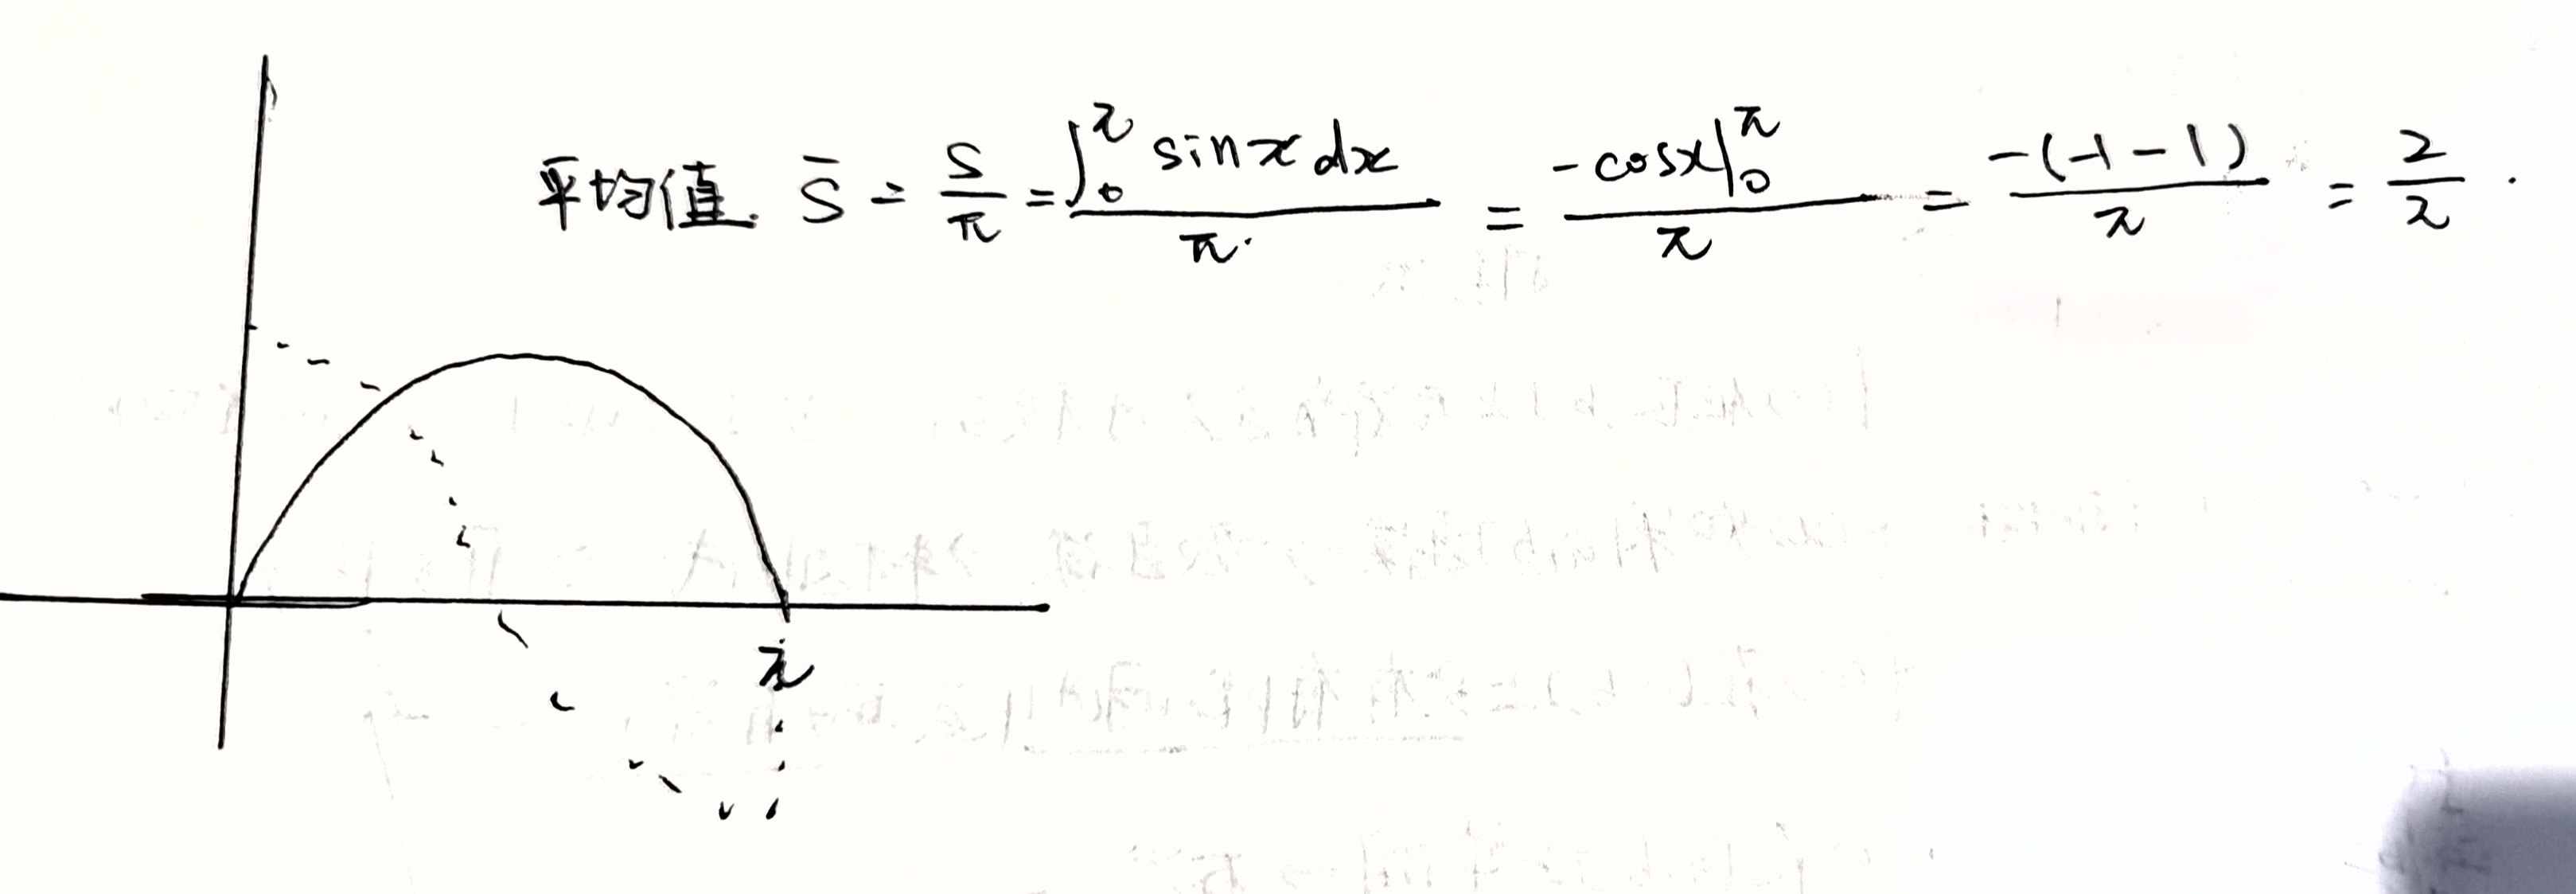 平均值. S̄ = S/π = ∫₀^π sinx dx / π. = -cosx|₀^π / π = -(-1-1) / π = 2/π.
π